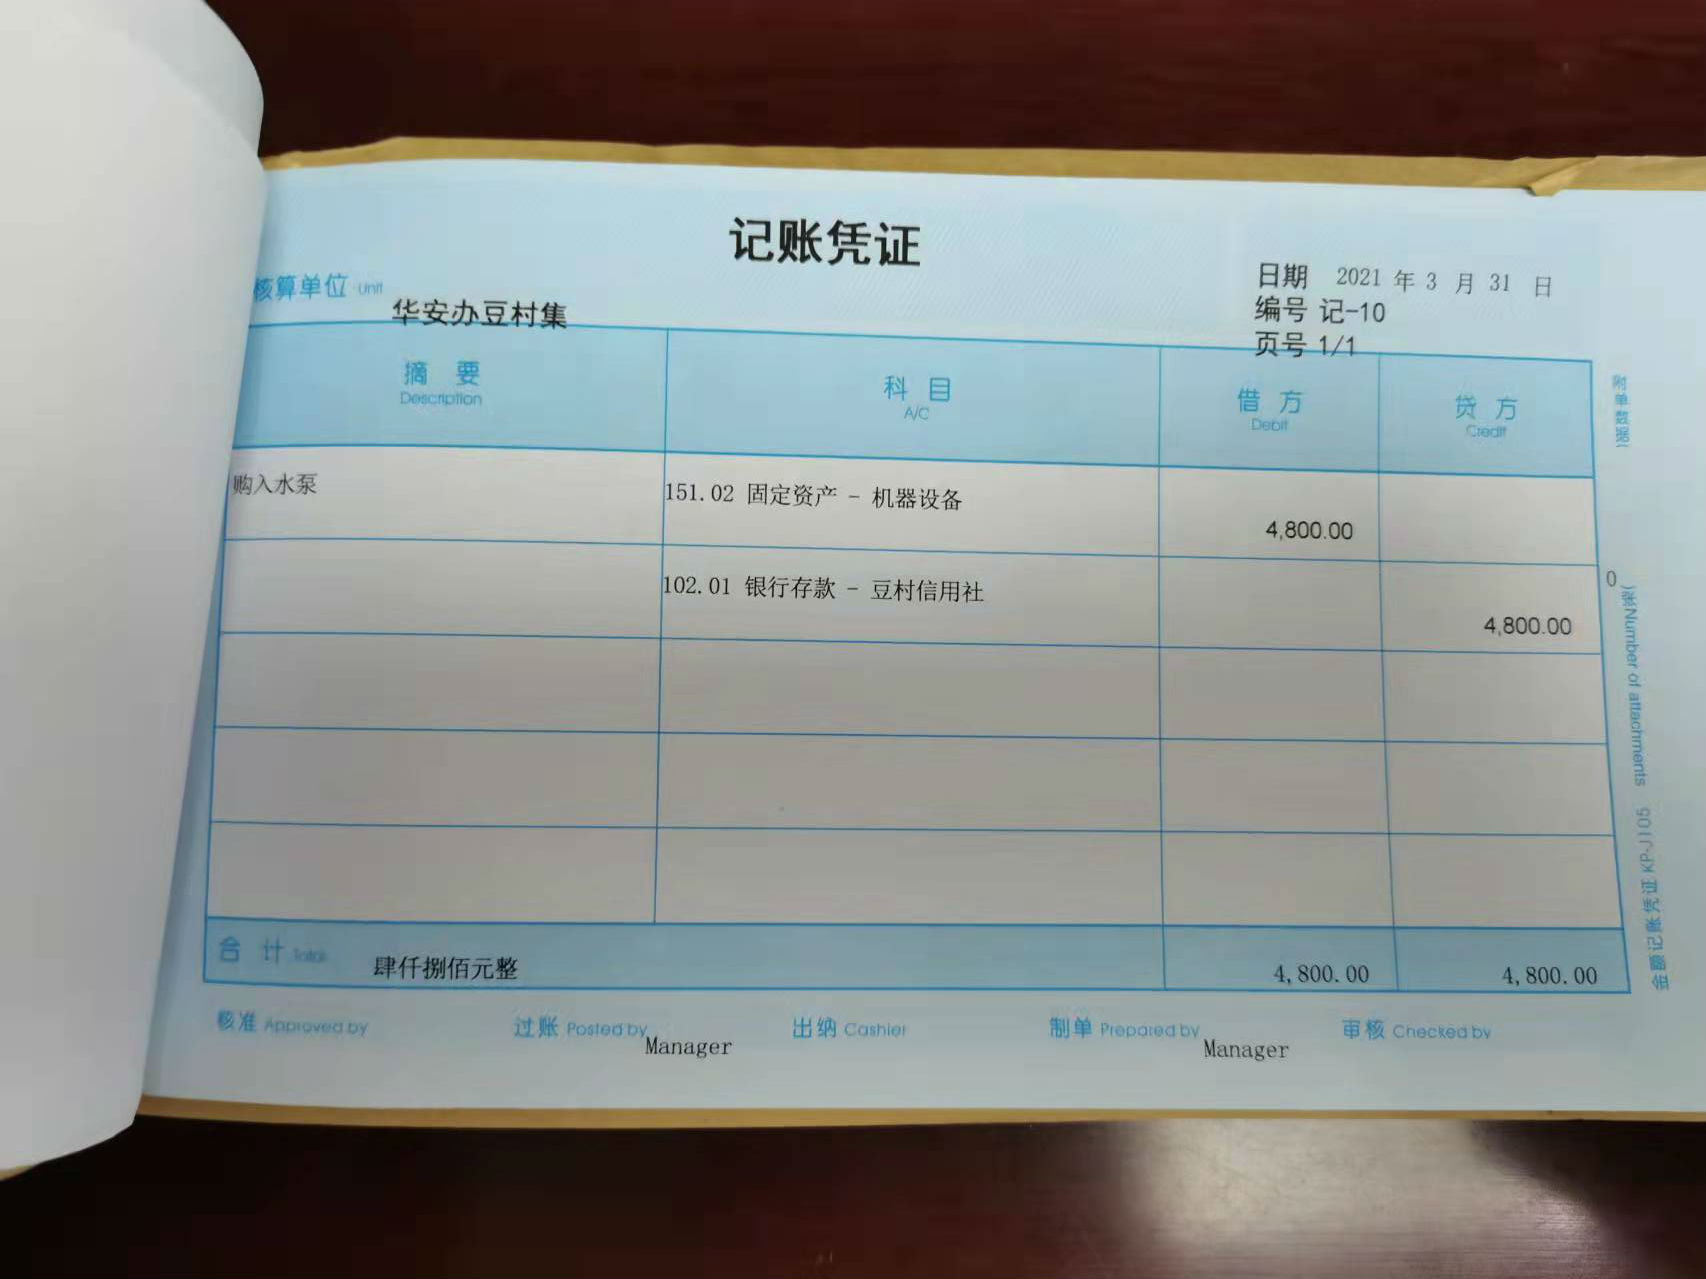 记账凭证
核算单位 Unit 华安办豆村集
日期 2021 年 3 月 31 日
编号 记-10
页号 1/1
摘 要 科 目 借 方 贷 方
Description A/C Debit Credit
购入水泵 151.02 固定资产 - 机器设备 4,800.00
102.01 银行存款 - 豆村信用社 4,800.00
合 计 Total 肆仟捌佰元整 4,800.00 4,800.00
核准 Approved by 过账 Posted by Manager 出纳 Cashier 制单 Prepared by Manager 审核 Checked by
附单数据( 0 张)Number of attachments
金额记账凭证 KP-J105